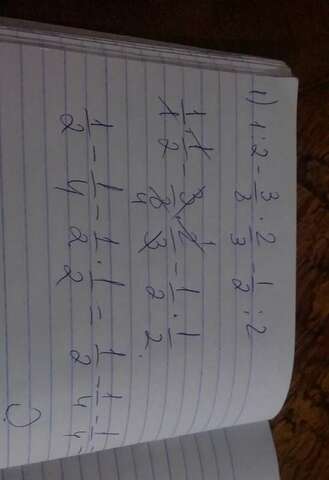 1) 1:2 - 3/8 · 2/3 - 1/2 : 2
1/1 · 1/2 - 3/8 · 2/3 - 1/2 · 1/2
1/2 - 1/4 - 1/2 · 1/2 = 1/2 - 1/4 - 1/4 =